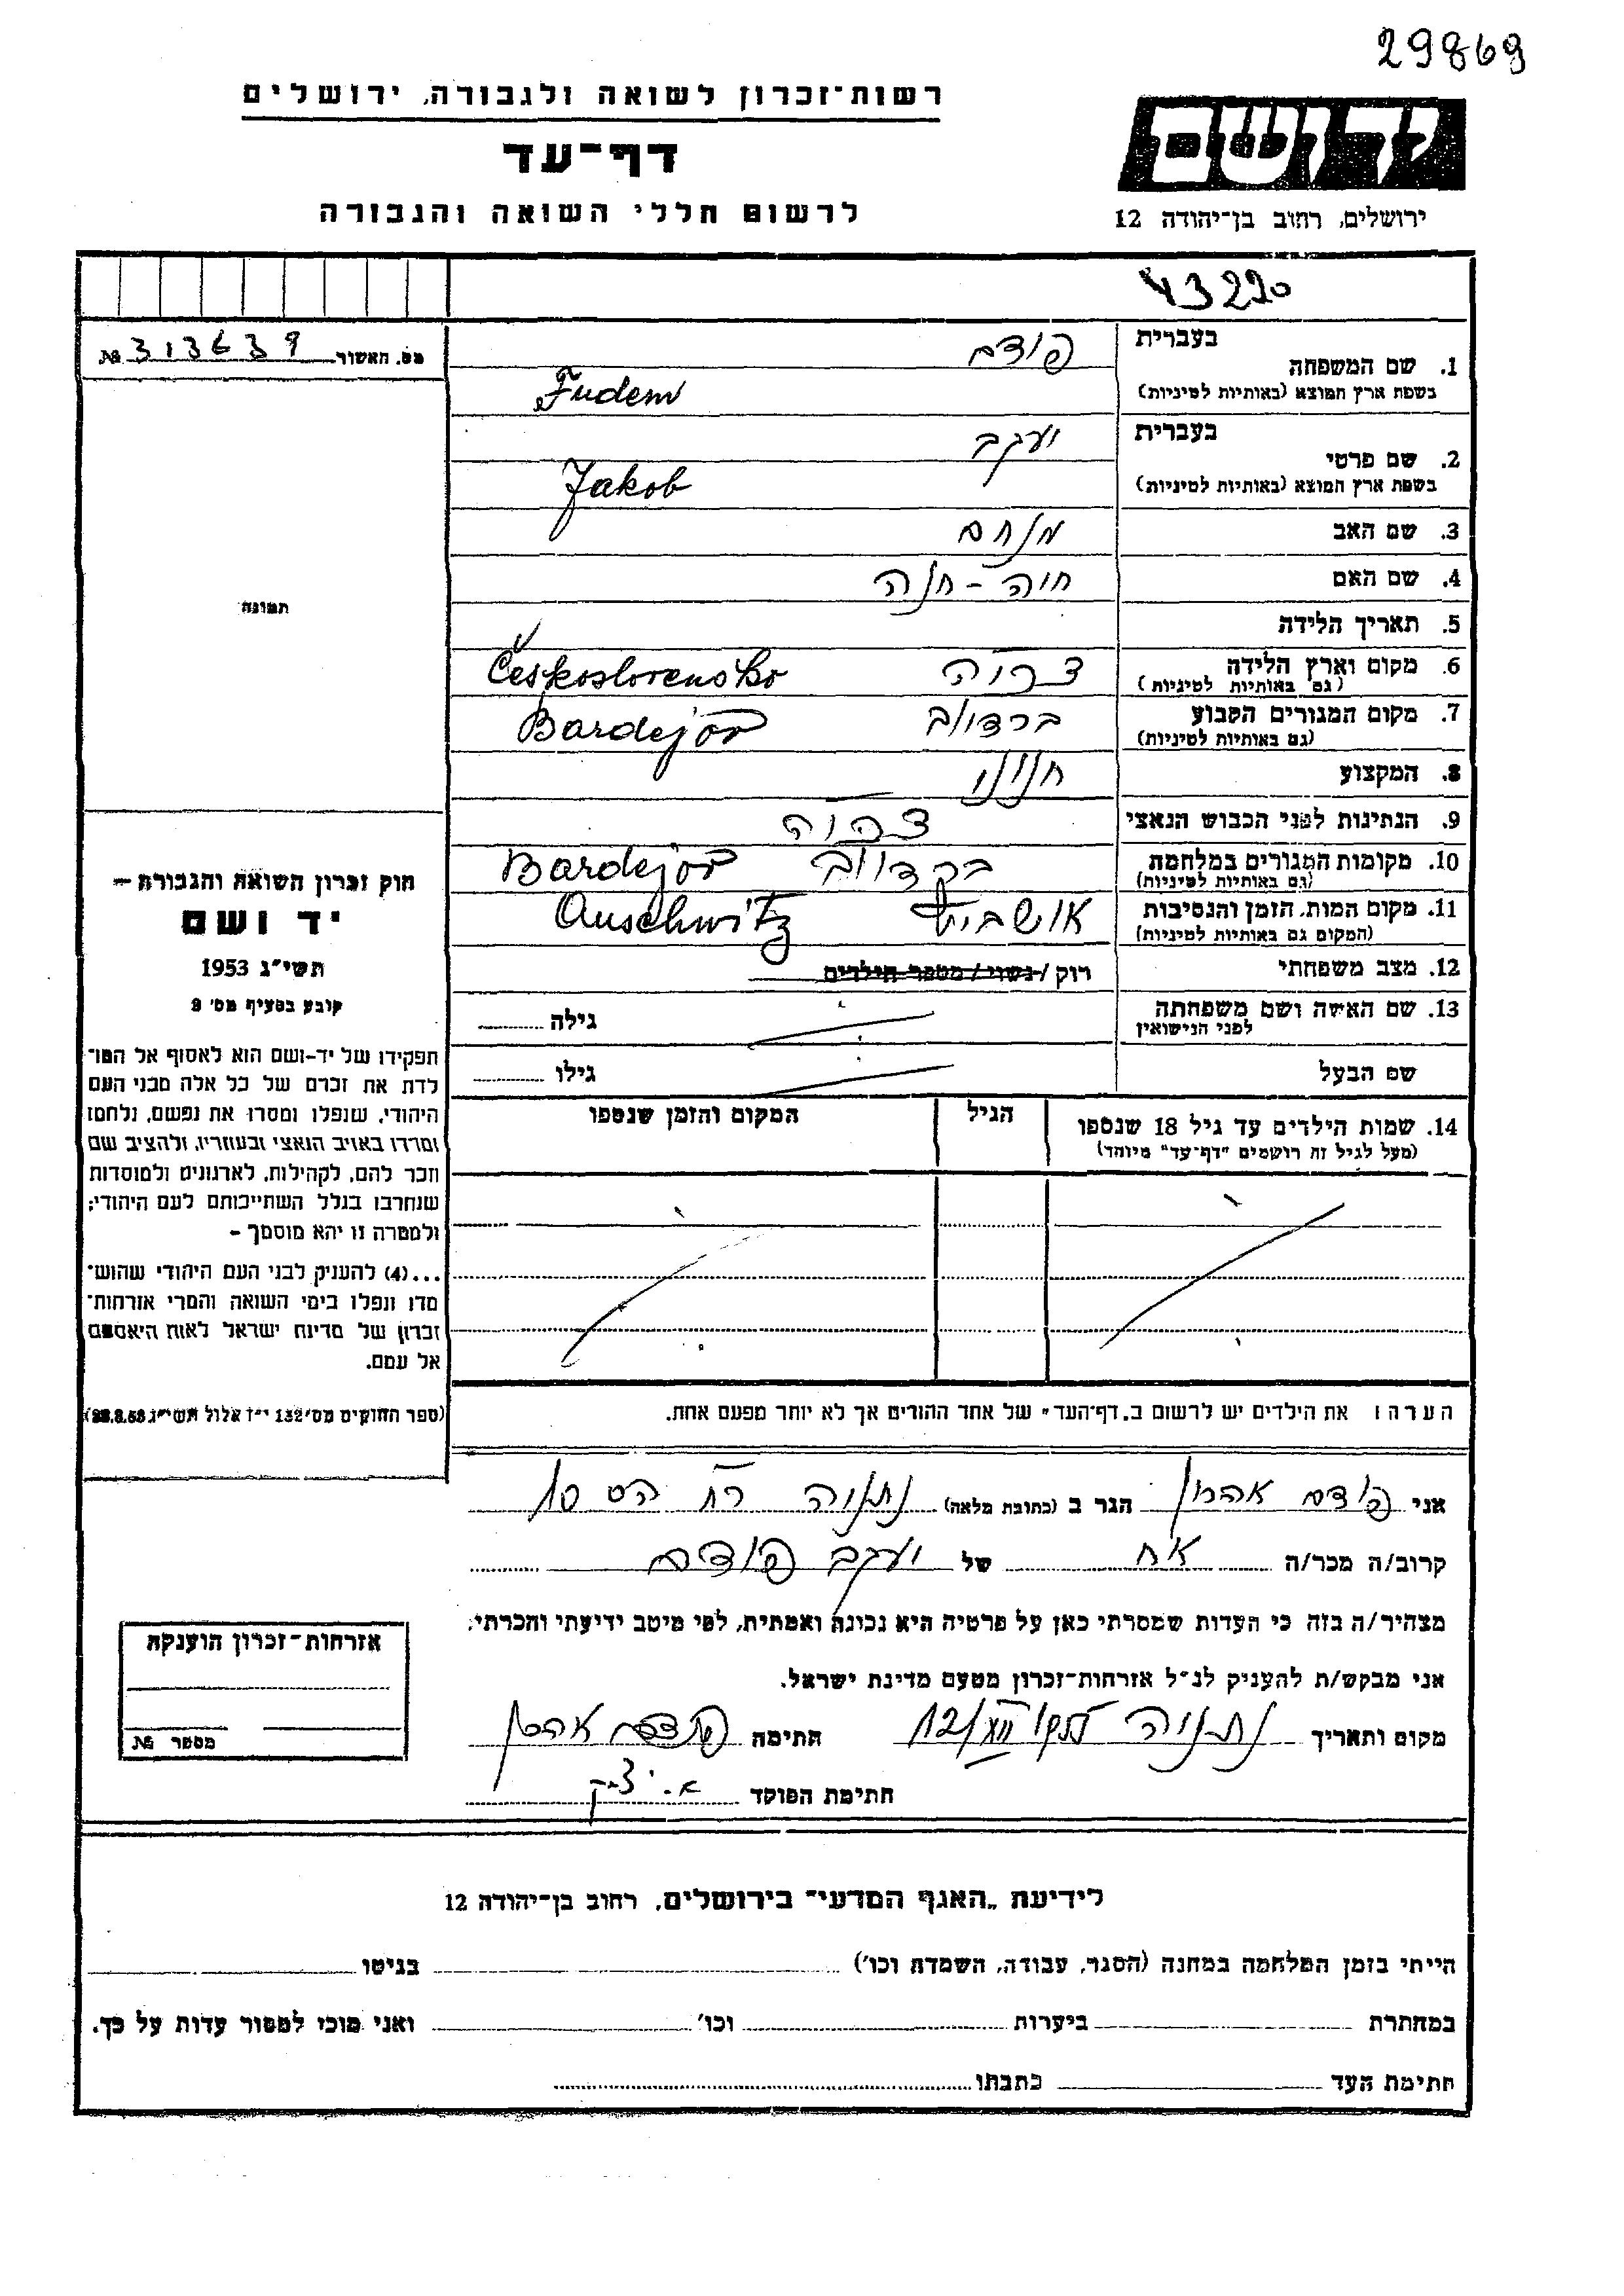 29869
רשות־זכרון לשואה ולגבורה, ירושלים
דף־עד
לרשום חללי השואה והגבורה
ידושם
ירושלים, רחוב בן־יהודה 12
43220
מס. האשור № 313639
בעברית
1. שם המשפחה
פודם
בשפת ארץ המוצא (באותיות לטיניות)
Fudem
בעברית
2. שם פרטי
יעקב
בשפת ארץ המוצא (באותיות לטיניות)
Jakob
3. שם האב מנחם
4. שם האם חיה - חנה
תמונה
5. תאריך הלידה
6. מקום וארץ הלידה צ'כיה Československo
(גם באותיות לטיניות)
7. מקום המגורים הקבוע ברדיוב Bardejov
(גם באותיות לטיניות)
8. המקצוע
9. הנתינות לפני הכבוש הנאצי צ'כיה
10. מקומות המגורים במלחמה ברדיוב Bardejov
(גם באותיות לטיניות)
11. מקום המות, הזמן והנסיבות אושביץ Auschwitz
(המקום גם באותיות לטיניות)
12. מצב משפחתי רוק / נשוי / מספר הילדים
13. שם האשה ושם משפחתה גילה
לפני הנישואין
שם הבעל גילו
14. שמות הילדים עד גיל 18 שנספו הגיל המקום והזמן שנספו
(מעל לגיל זה רושמים "דף־עד" מיוחד)
חוק זכרון השואה והגבורה —
יד ושם
תשי"ג 1953
קובע בסעיף מס' 2
תפקידו של יד-ושם הוא לאסוף אל המו־
לדת את זכרם של כל אלה מבני העם
היהודי, שנפלו ומסרו את נפשם, נלחמו
ומרדו באויב הנאצי ובעוזריו, ולהציב שם
וזכר להם, לקהילות, לארגונים ולמוסדות
שנחרבו בגלל השתייכותם לעם היהודי;
ולמטרה זו יהא מוסמך —
...(4) להעניק לבני העם היהודי שהוש־
מדו ונפלו בימי השואה והמרי אזרחות־
זכרון של מדינת ישראל לאות היאספם
אל עמם.
(ספר החוקים מס' 132 י"ז אלול תשי"ג 28.8.53)
הערה: את הילדים יש לרשום ב„דף־העד" של אחד ההורים אך לא יותר מפעם אחת.
אני פודם אהרון הגר ב (כתובת מלאה) נתניה רח
קרוב/ה מכר/ה אח של יעקב פודם
מצהיר/ה בזה כי העדות שמסרתי כאן על פרטיה היא נכונה ואמתית, לפי מיטב ידיעתי והכרתי.
אני מבקש/ת להעניק לנ"ל אזרחות־זכרון מטעם מדינת ישראל.
מקום ותאריך נתניה חתימה פודם אהרון
חתימת הפוקד
אזרחות־זכרון הוענקה
מספר №
לידיעת „האגף המדעי" בירושלים, רחוב בן־יהודה 12
הייתי בזמן המלחמה במחנה (הסגר, עבודה, השמדה וכו') בגיטו
במחתרת ביערות וכו' ואני מוכן למסור עדות על כך.
חתימת העד כתבתו